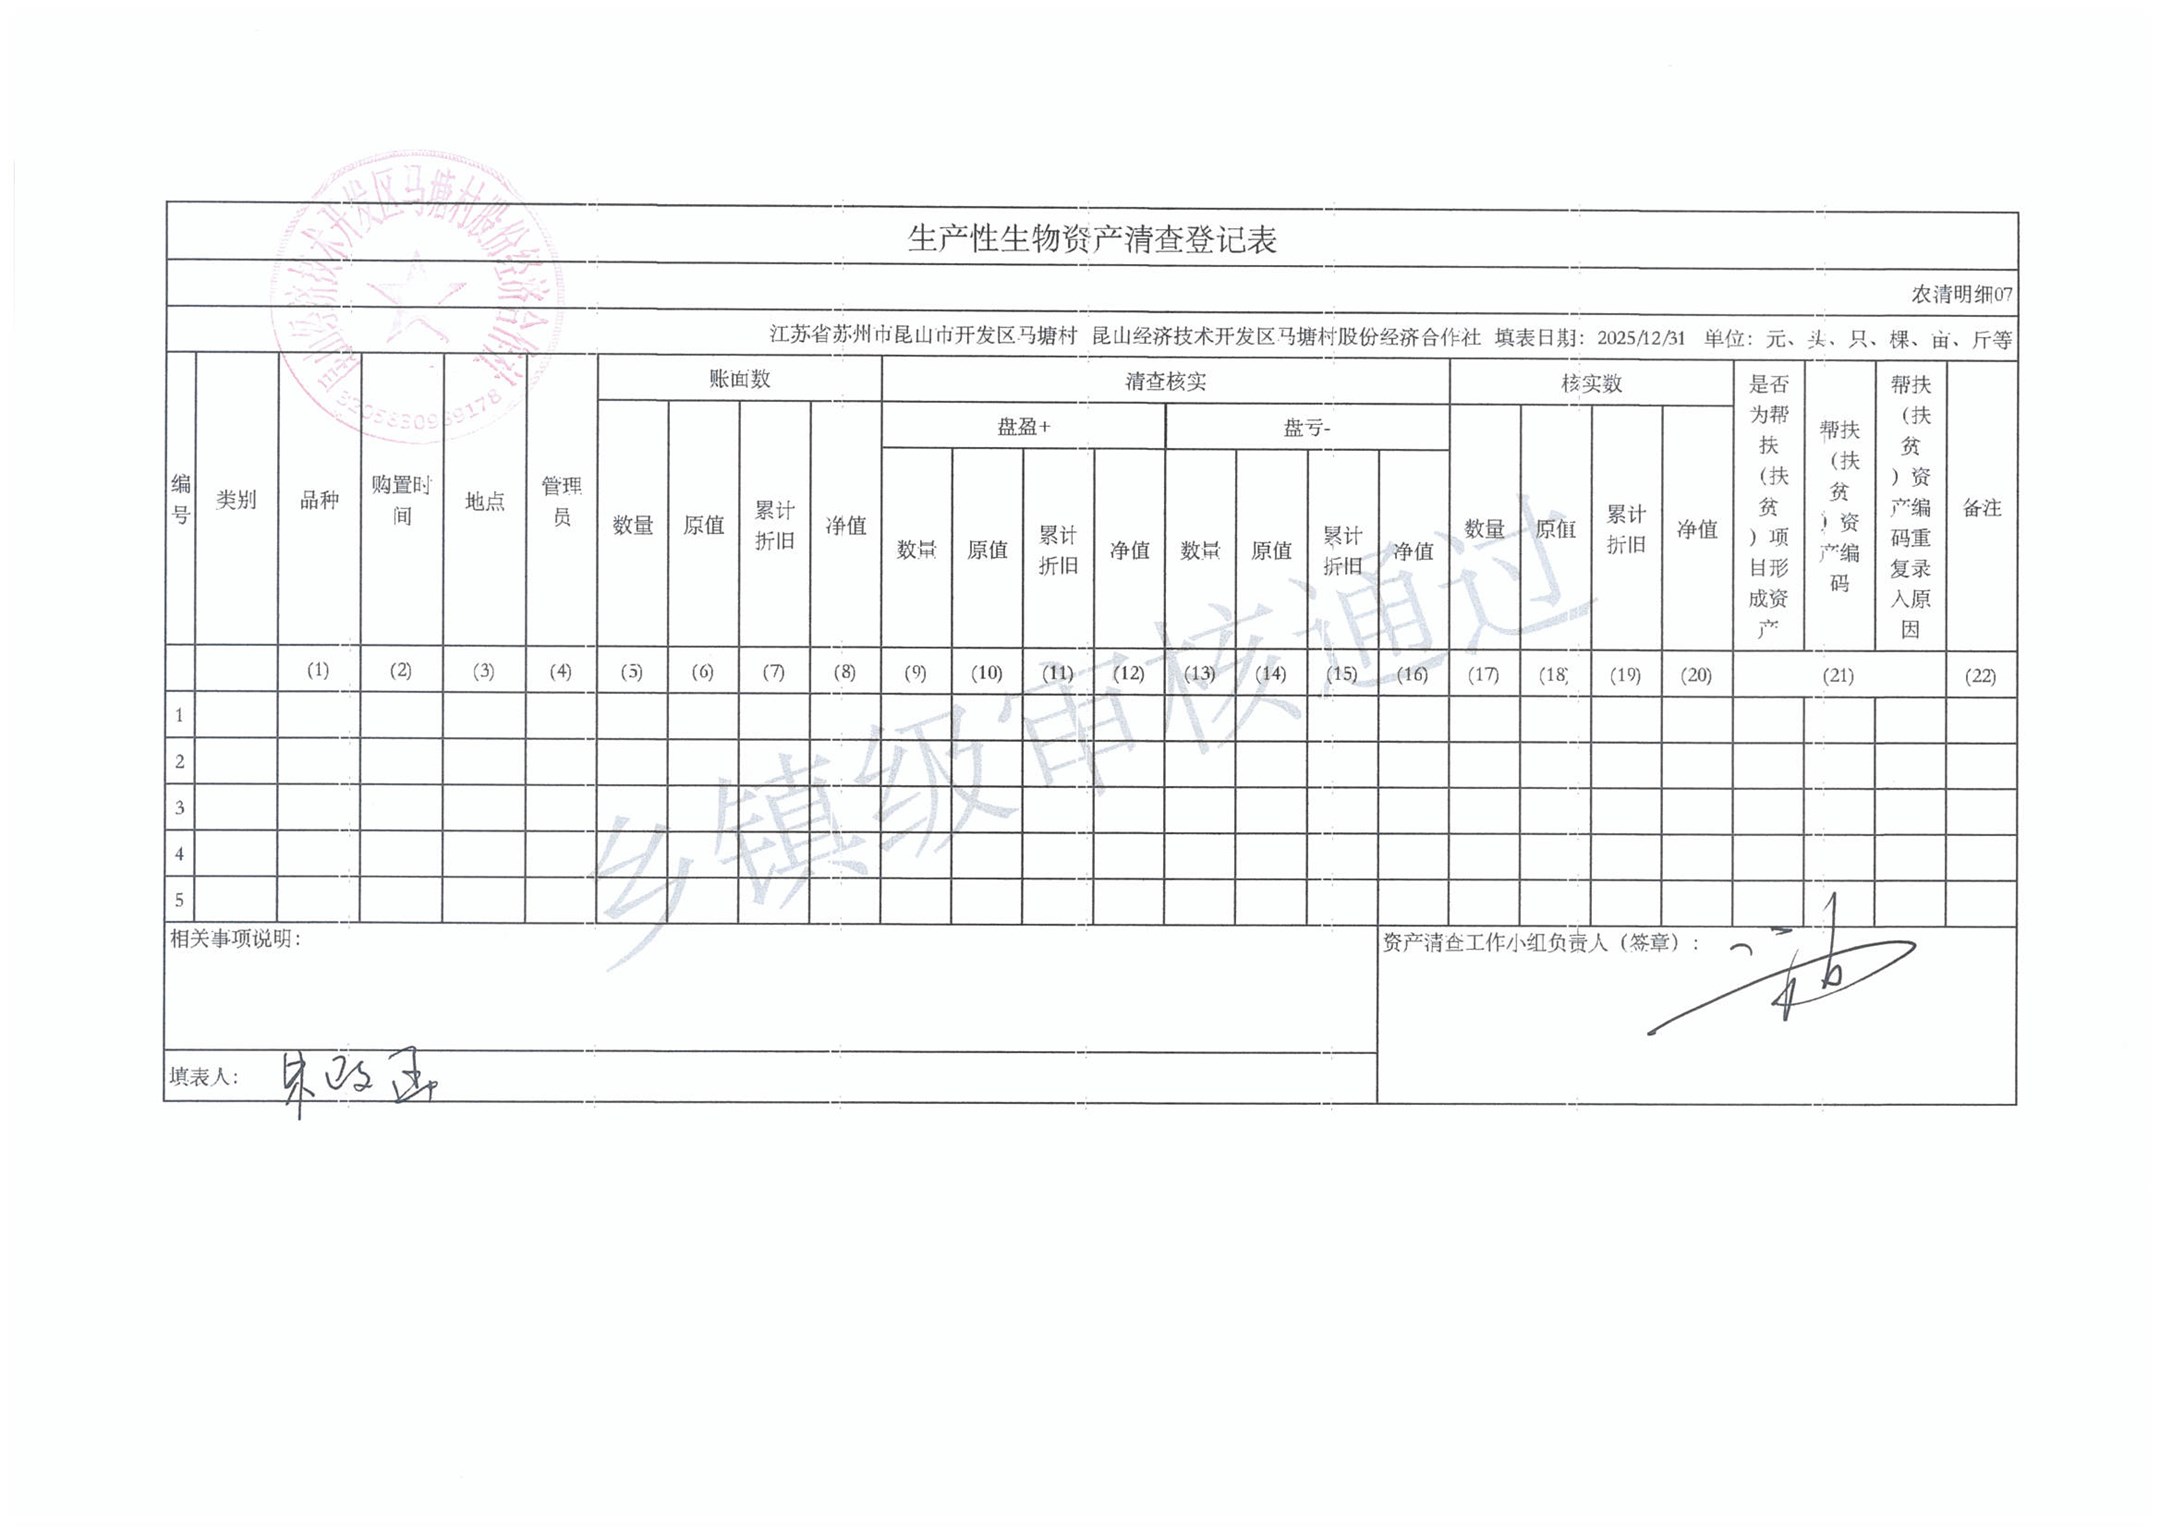 生产性生物资产清查登记表
农清明细07
江苏省苏州市昆山市开发区马塘村 昆山经济技术开发区马塘村股份经济合作社 填表日期：2025/12/31 单位：元、头、只、棵、亩、斤等
编号 类别 品种 购置时间 地点 管理员 账面数 清查核实 核实数 是否为帮扶（扶贫）项目形成资产 帮扶（扶贫）资产编码 帮扶（扶贫）资产编码重复录入原因 备注
盘盈+ 盘亏-
数量 原值 累计折旧 净值 数量 原值 累计折旧 净值 数量 原值 累计折旧 净值 数量 原值 累计折旧 净值
(1) (2) (3) (4) (5) (6) (7) (8) (9) (10) (11) (12) (13) (14) (15) (16) (17) (18) (19) (20) (21) (22)
1
2
3
4
5
相关事项说明：
资产清查工作小组负责人（签章）：
填表人：
乡镇级审核通过
昆山经济技术开发区马塘村股份经济合作社